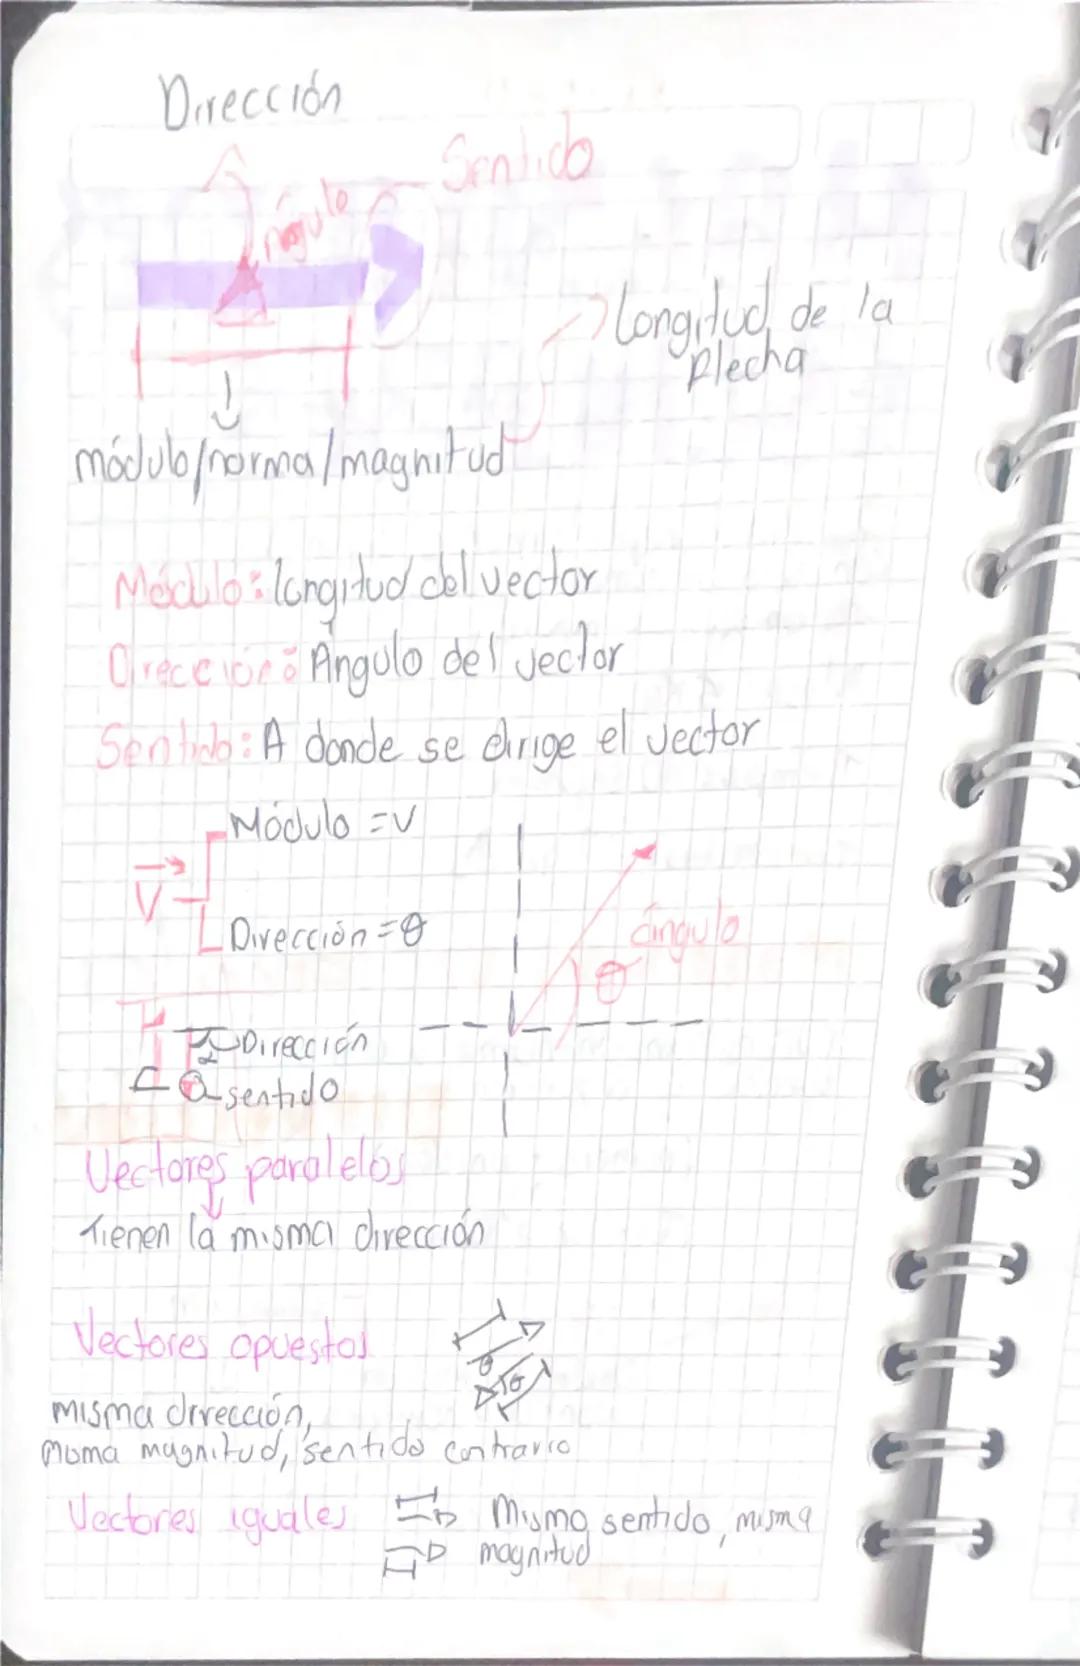 Dirección
Sentido
ángulo
longitud de la
flecha
módulo/norma/magnitud
Módulo: longitud del vector
Dirección: Angulo del vector
Sentido: A donde se dirige el vector
Módulo = V
V
Dirección = θ
ángulo
θ
Dirección
sentido
Vectores paralelos
Tienen la misma dirección
Vectores opuestos
θ
θ
misma dirección,
misma magnitud, sentido contrario
Vectores iguales
Mismo sentido, misma
magnitud